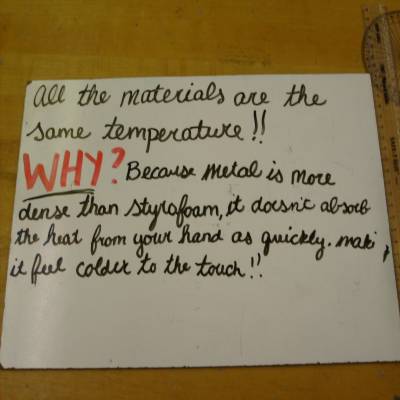 All the materials are the
same temperature!!
WHY? Because metal is more
dense than styrofoam, it doesn't absorb
the heat from your hand as quickly. maki
it feel colder to the touch!!